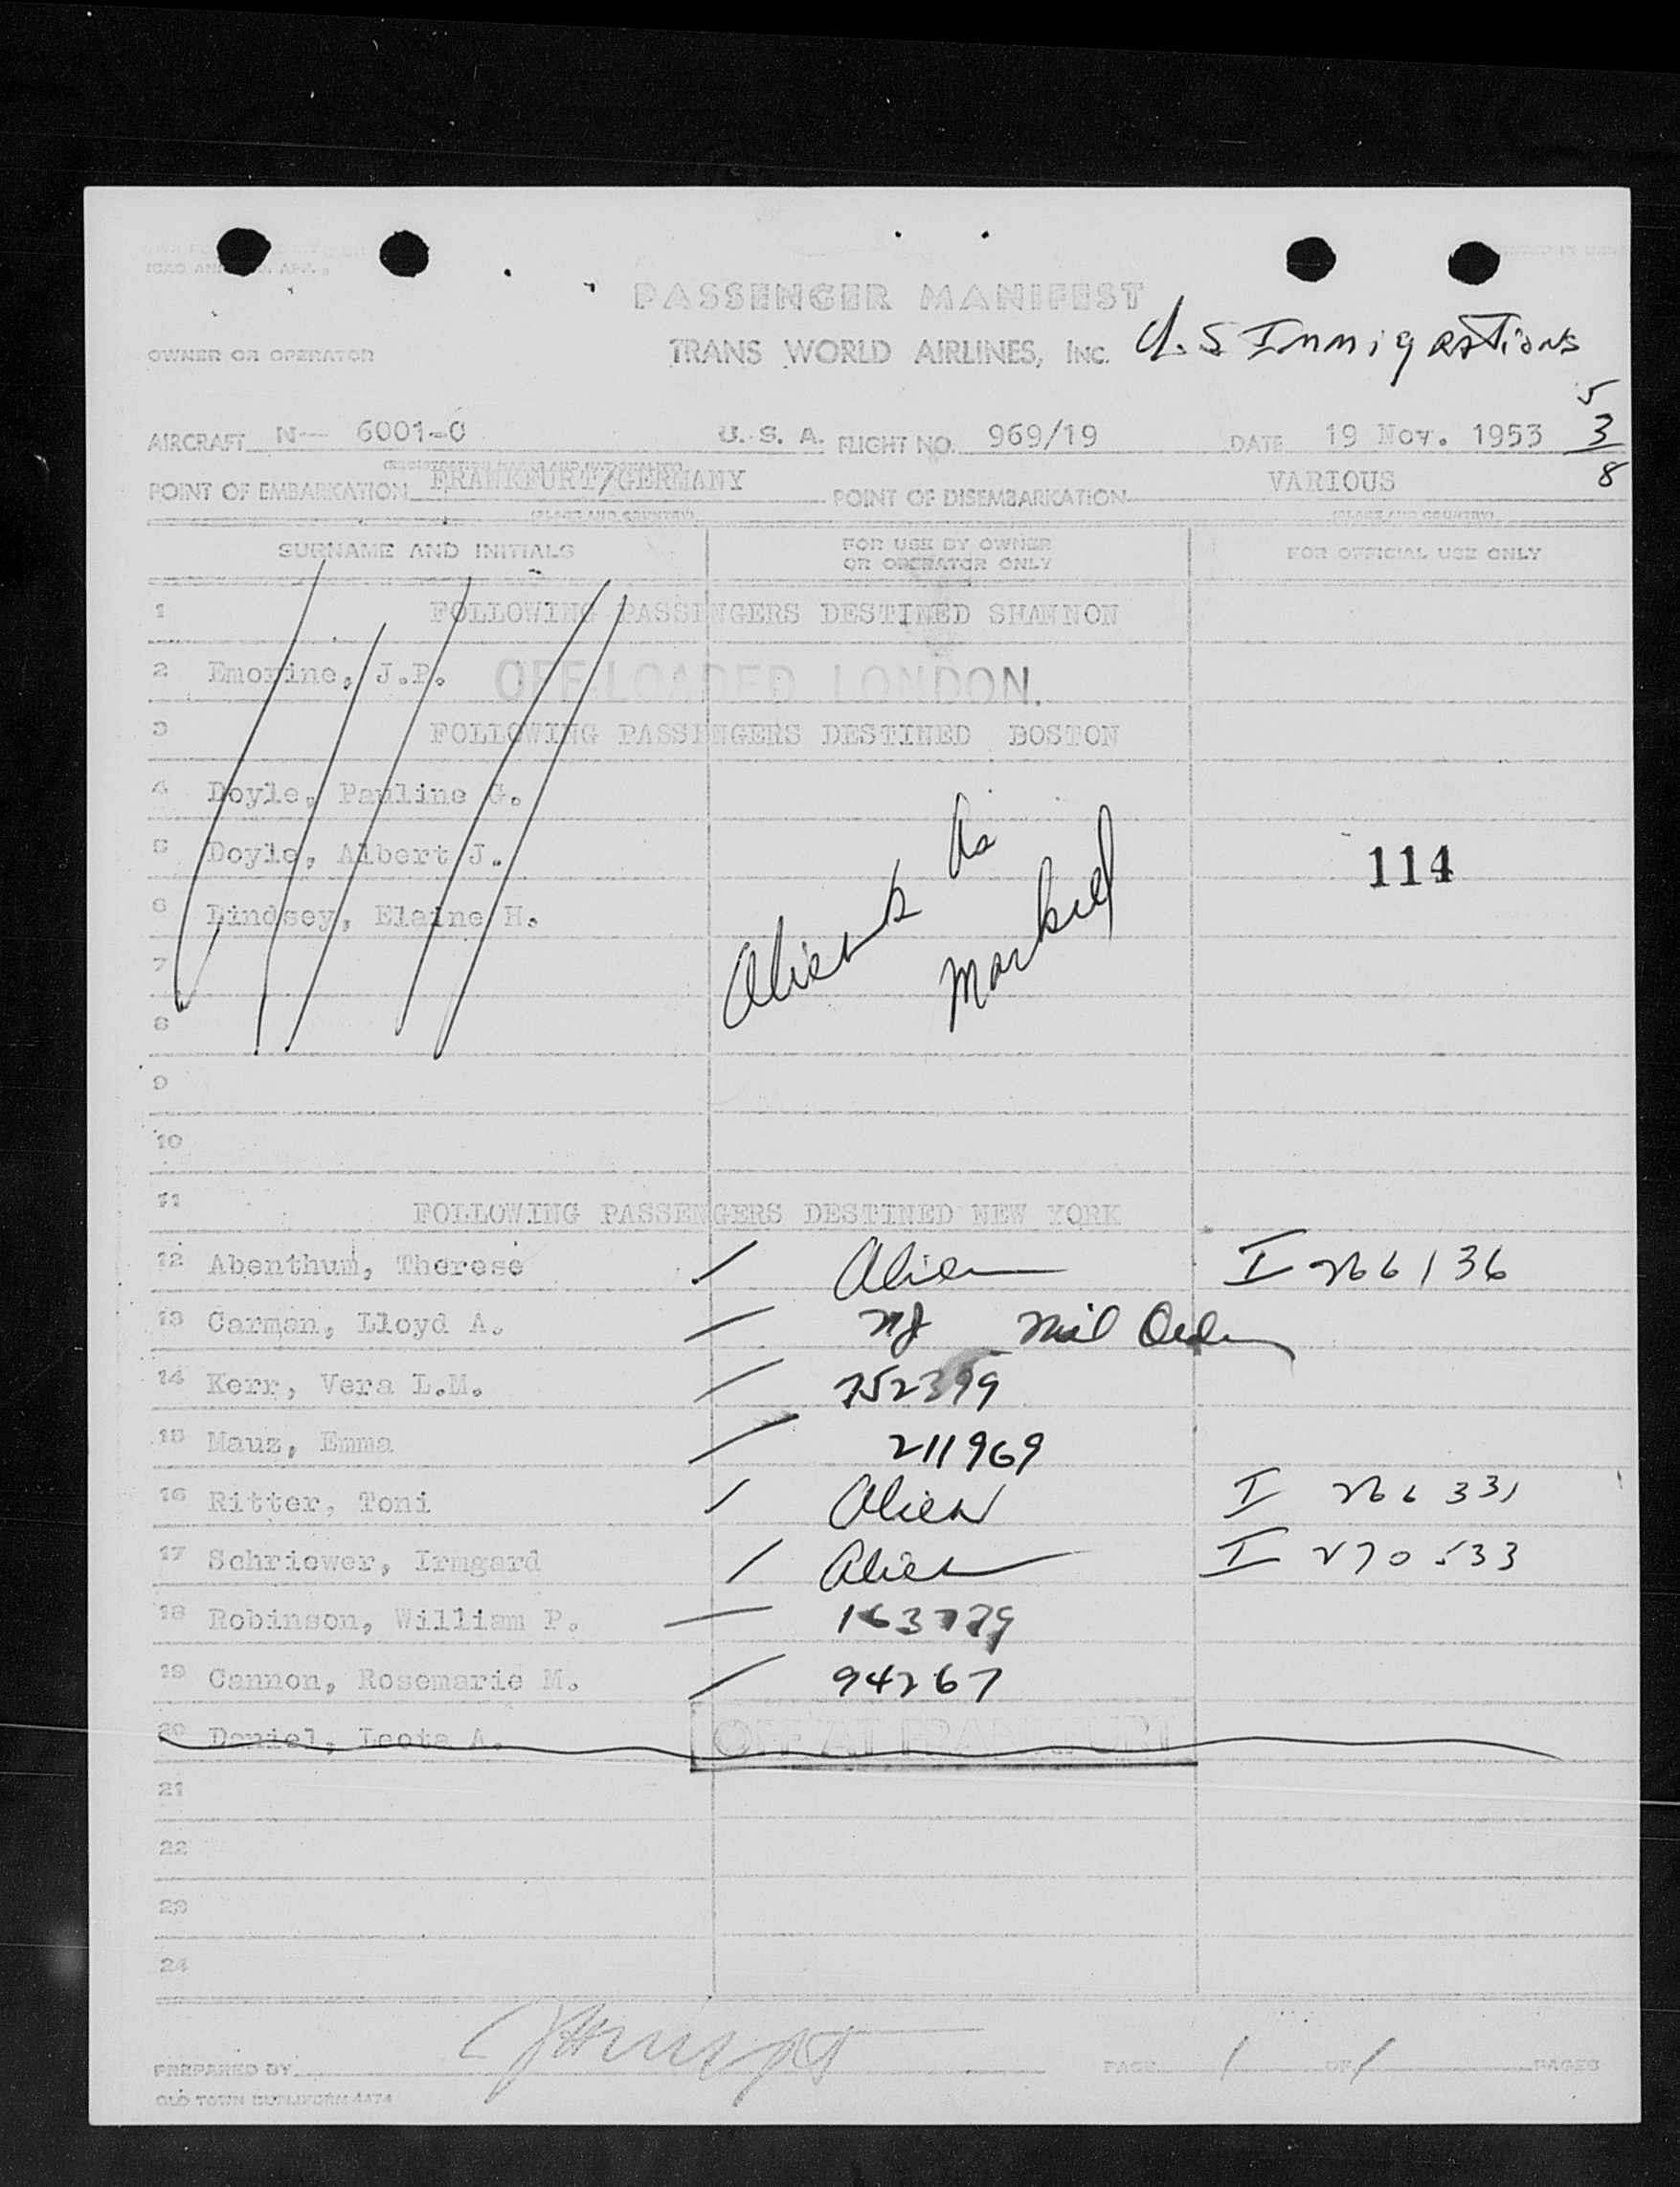 ICAO
PASSENGER MANIFEST
OWNER OR OPERATOR TRANS WORLD AIRLINES, INC. U.S Inmigrations
5
AIRCRAFT N-- 6001-C U. S. A. FLIGHT NO. 969/19 DATE 19 Nov. 1953 3
POINT OF EMBARKATION FRANKFURT/GERMANY POINT OF DISEMBARKATION VARIOUS 8
(PLACE AND COUNTRY) (PLACE AND COUNTRY)
SURNAME AND INITIALS FOR USE BY OWNER OR OPERATOR ONLY FOR OFFICIAL USE ONLY
1 FOLLOWING PASSENGERS DESTINED SHANNON
2 Emorine, J.P. OFF-LOADED LONDON.
3 FOLLOWING PASSENGERS DESTINED BOSTON
4 Doyle, Pauline G.
5 Doyle, Albert J. 114
6 Lindsey, Elaine H.
Aliens as
marked
7
8
9
10
11 FOLLOWING PASSENGERS DESTINED NEW YORK
12 Abenthum, Therese / Alien I 266136
13 Carman, Lloyd A. — Mil
14 Kerr, Vera L.M. / 252399
15 Mauz, Emma / 211969
16 Ritter, Toni / Alien I 266331
17 Schriewer, Irmgard / Alien I 270533
18 Robinson, William P. —
19 Cannon, Rosemarie M. / 94267
20 Daniel, Leota A. OFF AT FRANKFURT
21
22
23
24
PREPARED BY PAGE 1 OF 1 PAGES
OLD TOWN DUPLIFORM 4474